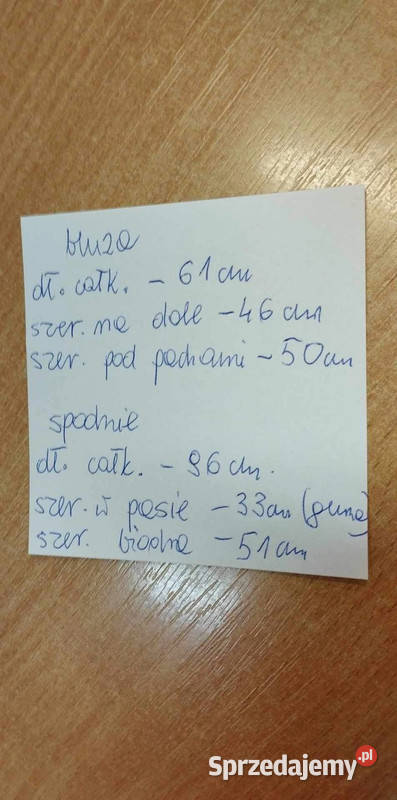 bluza
dł. całk. – 61 cm
szer. na dole – 46 cm
szer. pod pachami – 50 cm
spodnie
dł. całk. – 96 cm.
szer. w pasie – 33 cm (guma)
szer. biodra – 51 cm
Sprzedajemy.pl